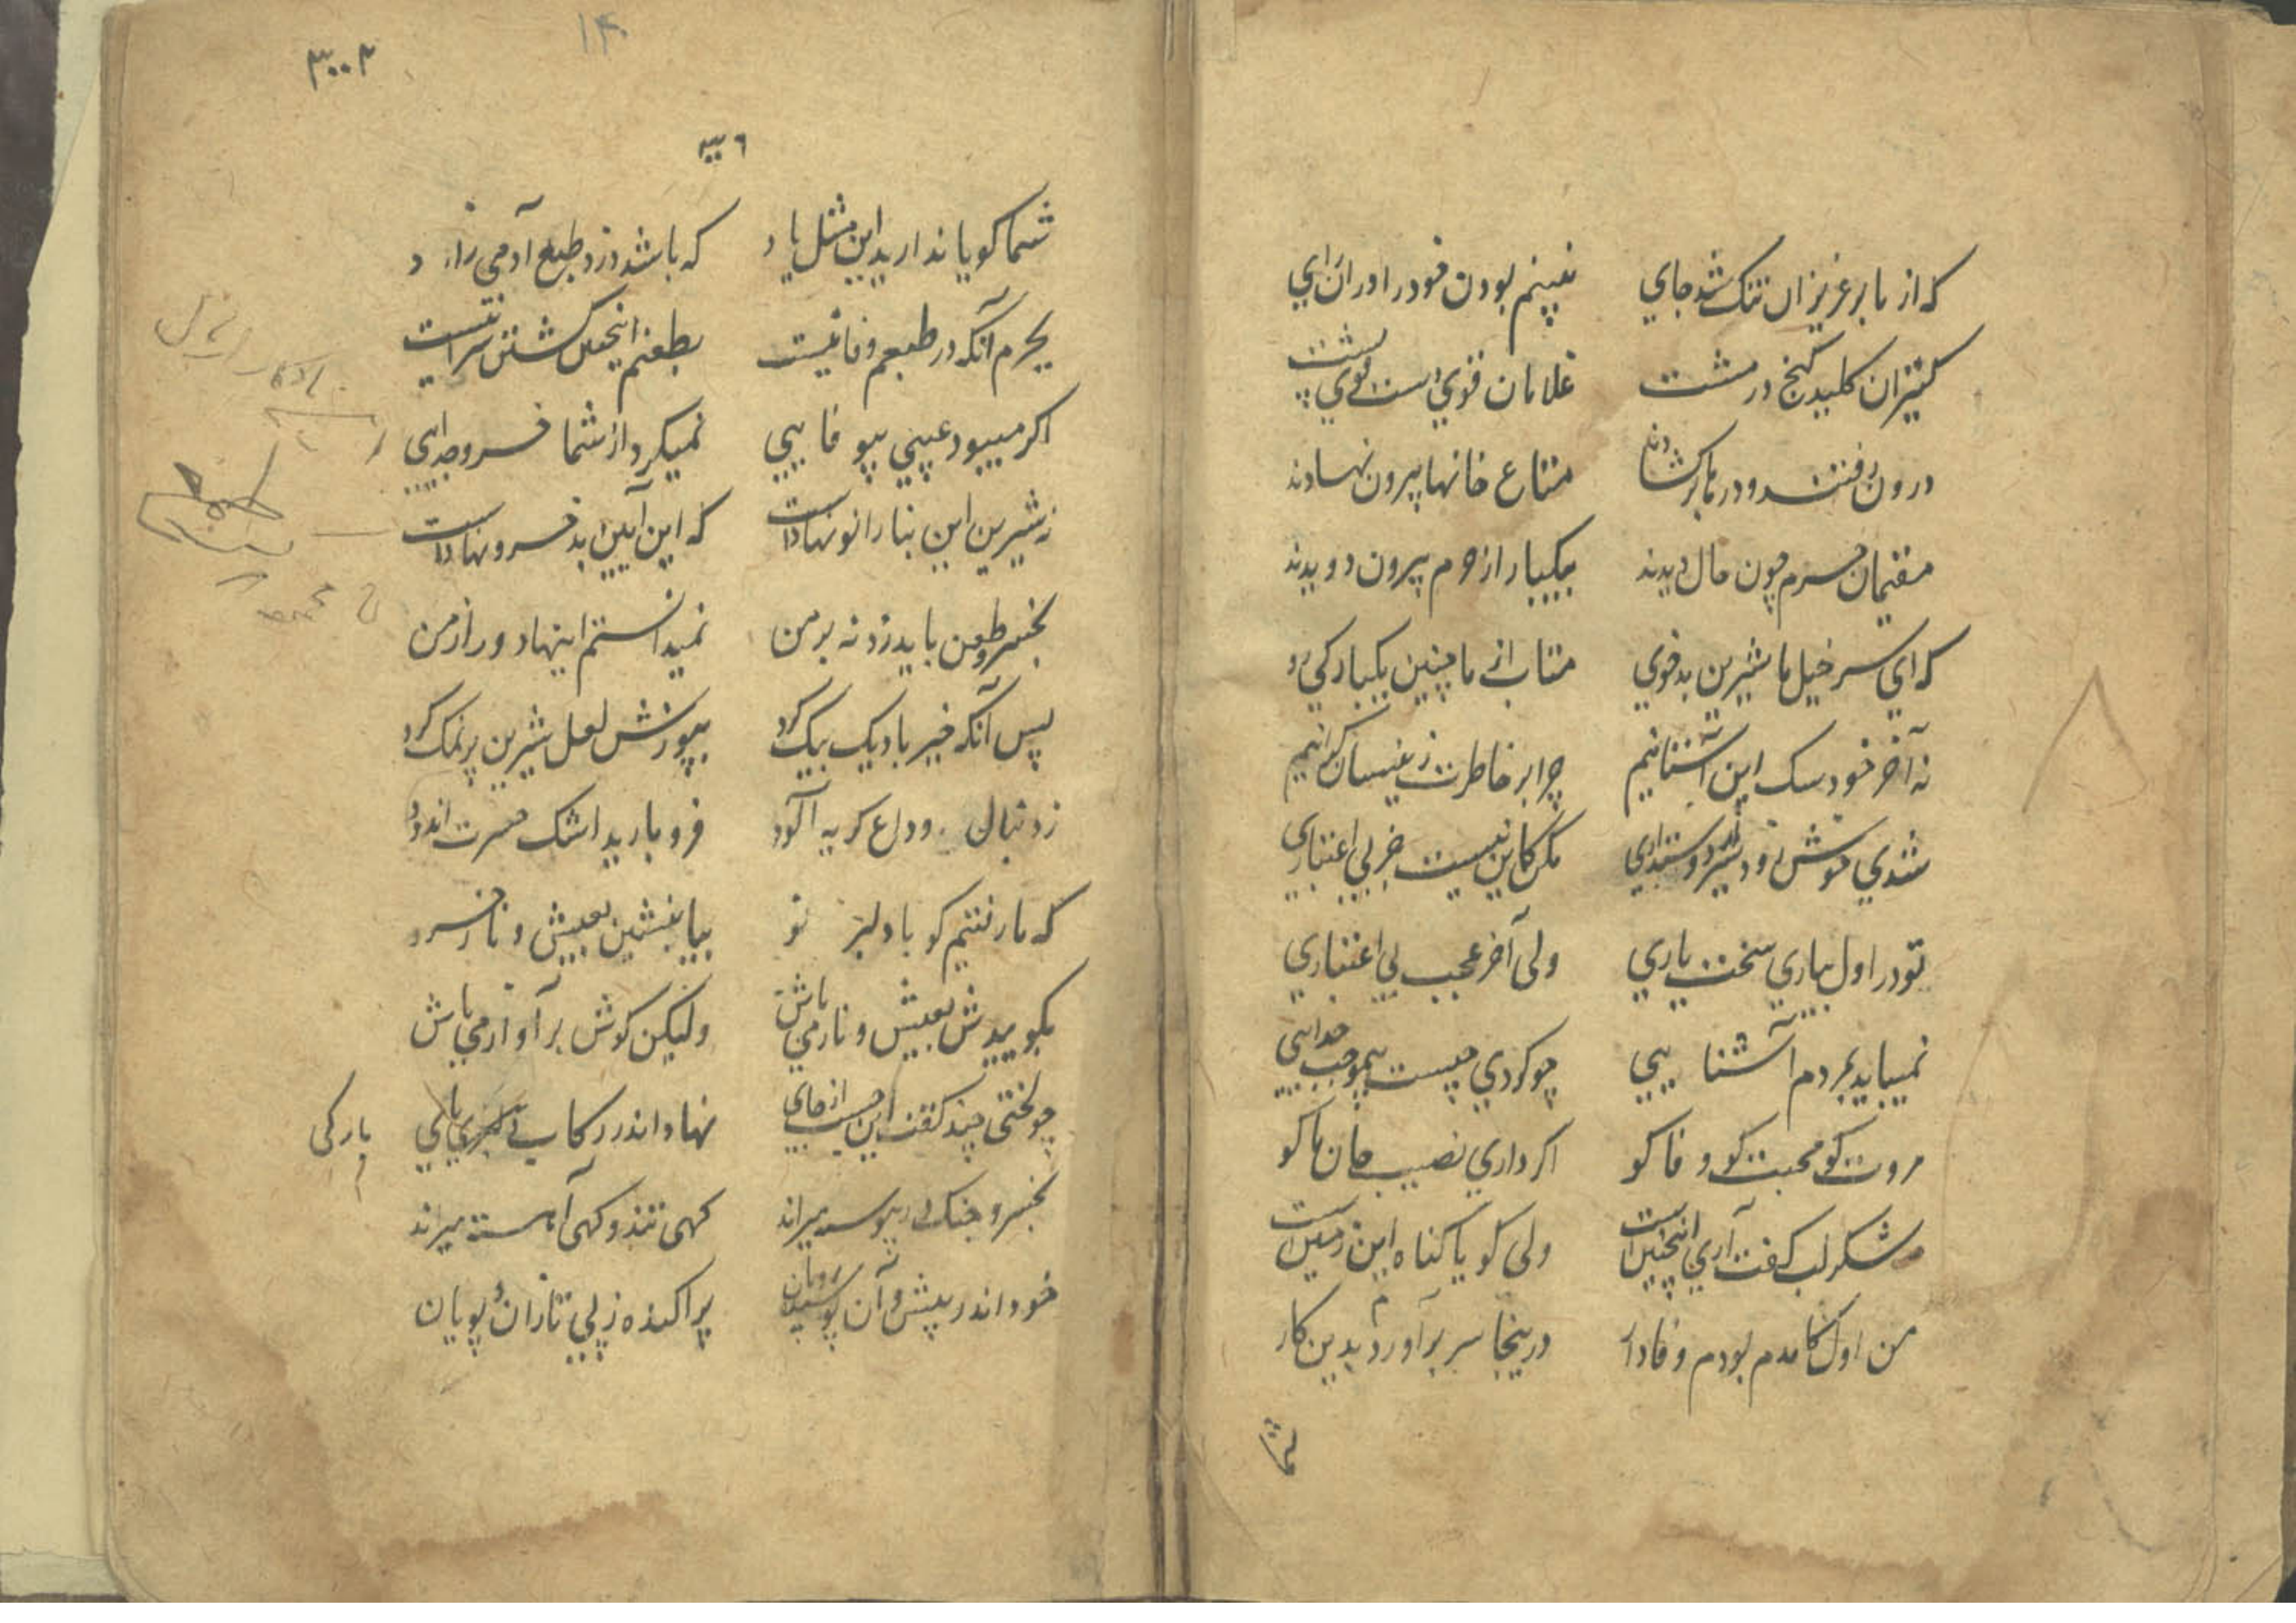 که از ما بر عزیزان تنک شد جای نبینم بودن خود را در ان رای
کنیزان کلید کنج در مشت غلامان قوی دست قوی پشت
درون رفتند و درها برکشادند متاع خانها بیرون نهادند
مقیمان حرم چون حال دیدند بیکبار از حرم بیرون دویدند
که ای سر خیل ما شیرین بدخوی متاب از ما چنین یکبارکی رو
نه آخر خود سک این آشنانیم چرا بر خاطرت زینسان کرانیم
شدی خوش زود سیر دوستداری مکن کاین نیست جز بی اعتباری
تو در اول بیاری سخت یاری ولی آخر عجب بی اعتباری
نمیباید بمردم آشنایی چو کردی چیست بیموجب جدایی
مروت کو محبت کو وفا کو اکر داری نصیب جان ما کو
شکر لب کفت آری اینچنین است ولی کویا کناه این زمین است
من اول کامدم بودم وفادار درینجا سر برآوردم بدین کار
شما
۱۴
۳۰۰۲
شما کویا ندارید این مثل یاد که باشد دزد طبع آدمی زاد
بجرم آنکه در طبعم وفا نیست بطعنم اینچنین کشتن سزا نیست
اکر میبود عیبی بیوفایی نمیکرد از شما خسرو جدایی
ز شیرین این بنا را نو نهادست که این آیین بد خسرو نهادست
بخسرو طعن باید زد نه بر من نمیدانستم اینها دور از من
پس آنکه خیر باد یک بیک کرد بپوزش لعل شیرین پر نمک کرد
ز دنبال وداع کریه آلود فرو بارید اشک حسرت اندود
که ما رفتیم کو با دلبر نو بیا بنشین بعیش و ناز خسرو
بکوییدش بعیش و ناز می باش ولیکن کوش بر آواز می باش
چو لختی چند کفت این جست از جای نهاد اندر رکاب پای
بارکی
بخسرو جنک در پیوسته میراند کهی تند و کهی آهسته میراند
خود اندر پیش و آن پوشیده رویان پراکنده ز پی تازان و پویان